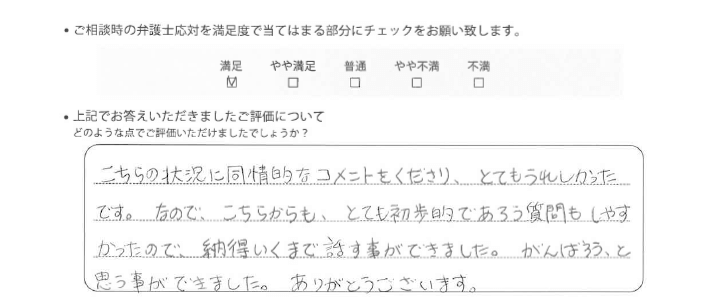 • ご相談時の弁護士応対を満足度で当てはまる部分にチェックをお願い致します。
満足 やや満足 普通 やや不満 不満
☑ ☐ ☐ ☐ ☐
• 上記でお答えいただきましたご評価について
どのような点でご評価いただけましたでしょうか？
こちらの状況に同情的なコメントをくださり、とてもうれしかった
です。なので、こちらからも、とても初歩的であろう質問もしやす
かったので、納得いくまで話す事ができました。がんばろう、と
思う事ができました。ありがとうございます。